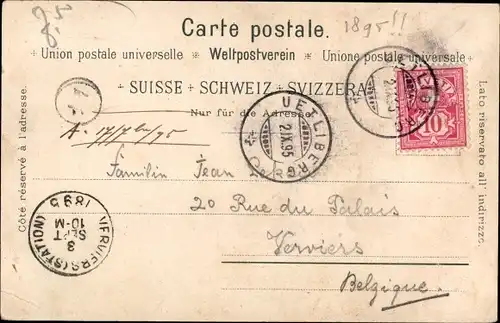 8.50
Carte postale.
1895!!
Union postale universelle Weltpostverein Unione postale universale
SUISSE SCHWEIZ SVIZZERA
Nur für die Adresse
Côte réservé à l'adresse.
Lato riservato all'indirizzo.
UETLIBERG
2.IX.95
10
UETLIBERG
Familie Jean
20 Rue du Palais
Verviers
Belgique.
VERVIERS (STATION)
3
SEPT
10-M
1895